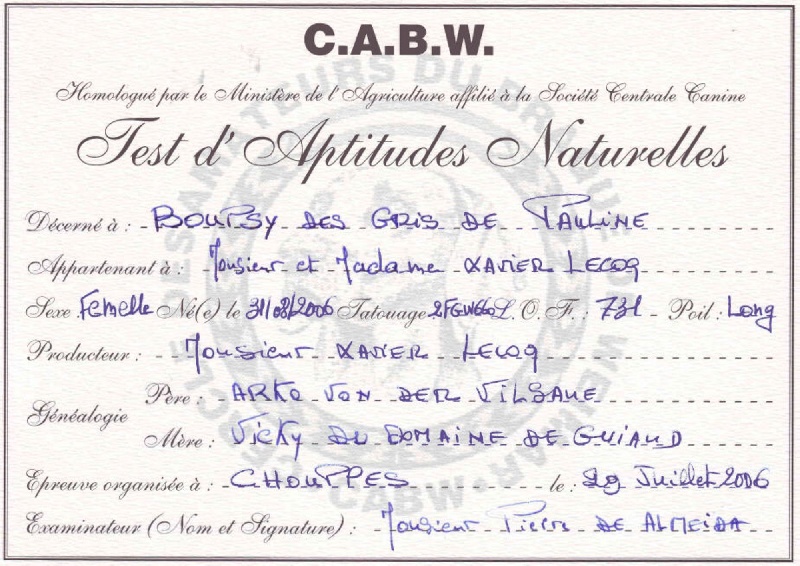 C.A.B.W.
Homologué par le Ministère de l'Agriculture affilié à la Société Centrale Canine
Test d'Aptitudes Naturelles
Décerné à : BOUPSY DES GRIS DE PAULINE
Appartenant à : Monsieur et Madame XAVIER LECOQ
Sexe : Femelle Né(e) le 31/08/2006 Tatouage 2FGW660 L.O.F. : 731 - Poil : Long
Producteur : Monsieur XAVIER LECOQ
Père : ARKO VON DER VILSAUE
Généalogie
Mère : Vicky DU DOMAINE DE GUIAUD
Epreuve organisée à : CHOUPPES le : 29 Juillet 2006
Examinateur (Nom et Signature) : Monsieur Pierre DE ALMEIDA
CABW